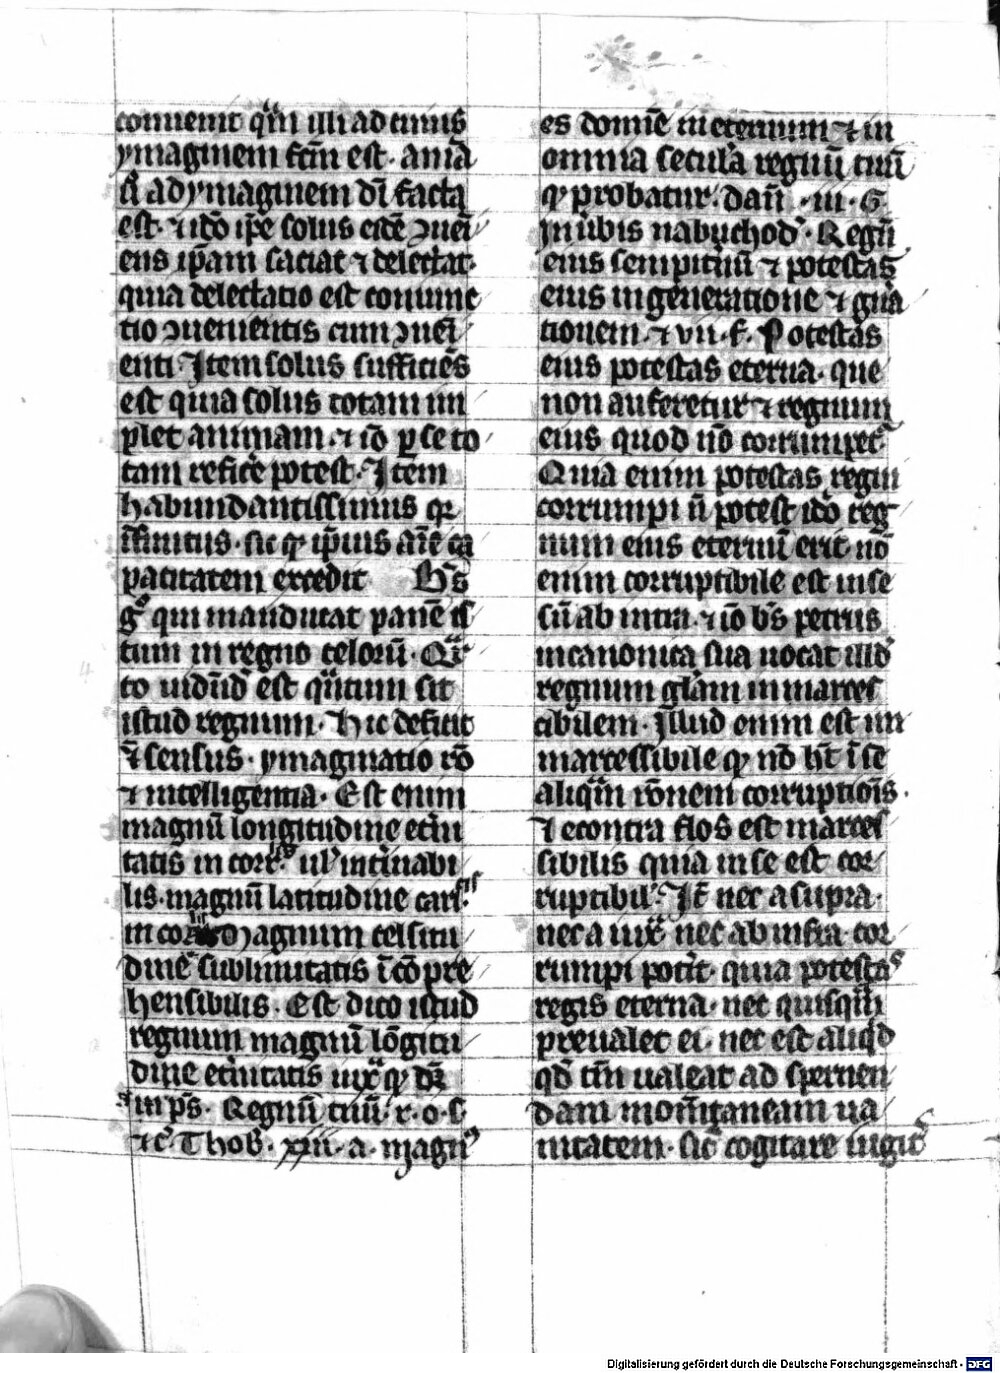 conuenit qm̄ illi ad cuius
ymaginem fcm̄ est · aīa
ū ad ymaginem dī facta
est · ⁊ iō ip̄e solus eidē ꝯueī
ens ip̄am saciat ⁊ delectat ·
quia delectatio est coniunc
tio ꝯuenientis cum ꝯueī
enti · Item solus sufficiēs
est quia solus totam im
plet animam · ⁊ iō ꝑ se to
tam reficē potest · Item
habundantissimus qꝛ
īfinitus · sic ꝙ ip̄ius aīe ca
pacitatem excedit Bt̄s
gͦ qui manducat panē is
tum in regno celorū · Qr̄
to uidēd̄ est qntum sit
istud regnum · Hic deficit
ē sensus · ymaginatio rō
⁊ intelligentia · Est enim
magnū longitudine etn̄i
tatis in corr. ul' int̄minabi
lis · magnū latitudine cari
in cor Magnum celsitu
dine sublimitatis īcōpre
hensibilis · Est dico istud
regnum magnū lōgitu
dine et̄nitatis iuxͣ ꝙ dr̄
in ps̄ · Regnū tuū · r · o · s ·
⁊c̄ Thob̄ · xiii · a · magn᷒
es domīe in eternum ⁊ in
omnia secula regnū tuū
ꝙ probatur · dan̄ · iii · G
In ūbis nabuchod̄ · Regnū
eius sempit̄nū ⁊ potestas
eius in generatione ⁊ gn̄a
tionem · ⁊ vii · f · Potestas
eius potestas eterna · que
non auferetur ⁊ regnum
eius quod nō corrumpet᷑
Quia enim potestas regni
corrumpi n̄ potest idō reg
num eius eternū erit · nō
enim corruptibile est in se
siū ab intra · ⁊ iō bt̄s petrus
in canonica sua uocat illd̄
regnum gl̄am in marces
cibilem · Illud enim est im
marcessibile ꝙ nō ht̄ ī se
aliqm̄ rōnem corruptiōis ·
⁊ econtra flos est marces
sibilis quia in se est cor
ruptibil' · It̄ nec a supra ·
nec a iuxͣ nec ab infra cor
rumpi pot̄it · quia potestas
regis eterna · nec quisqm̄
preualet ei · nec est aliqd
qd̄ tm̄ ualeat ad spernen
dam momētaneam ua
nitatem · sic̄ cogitare iugit᷑
Digitalisierung gefördert durch die Deutsche Forschungsgemeinschaft - DFG